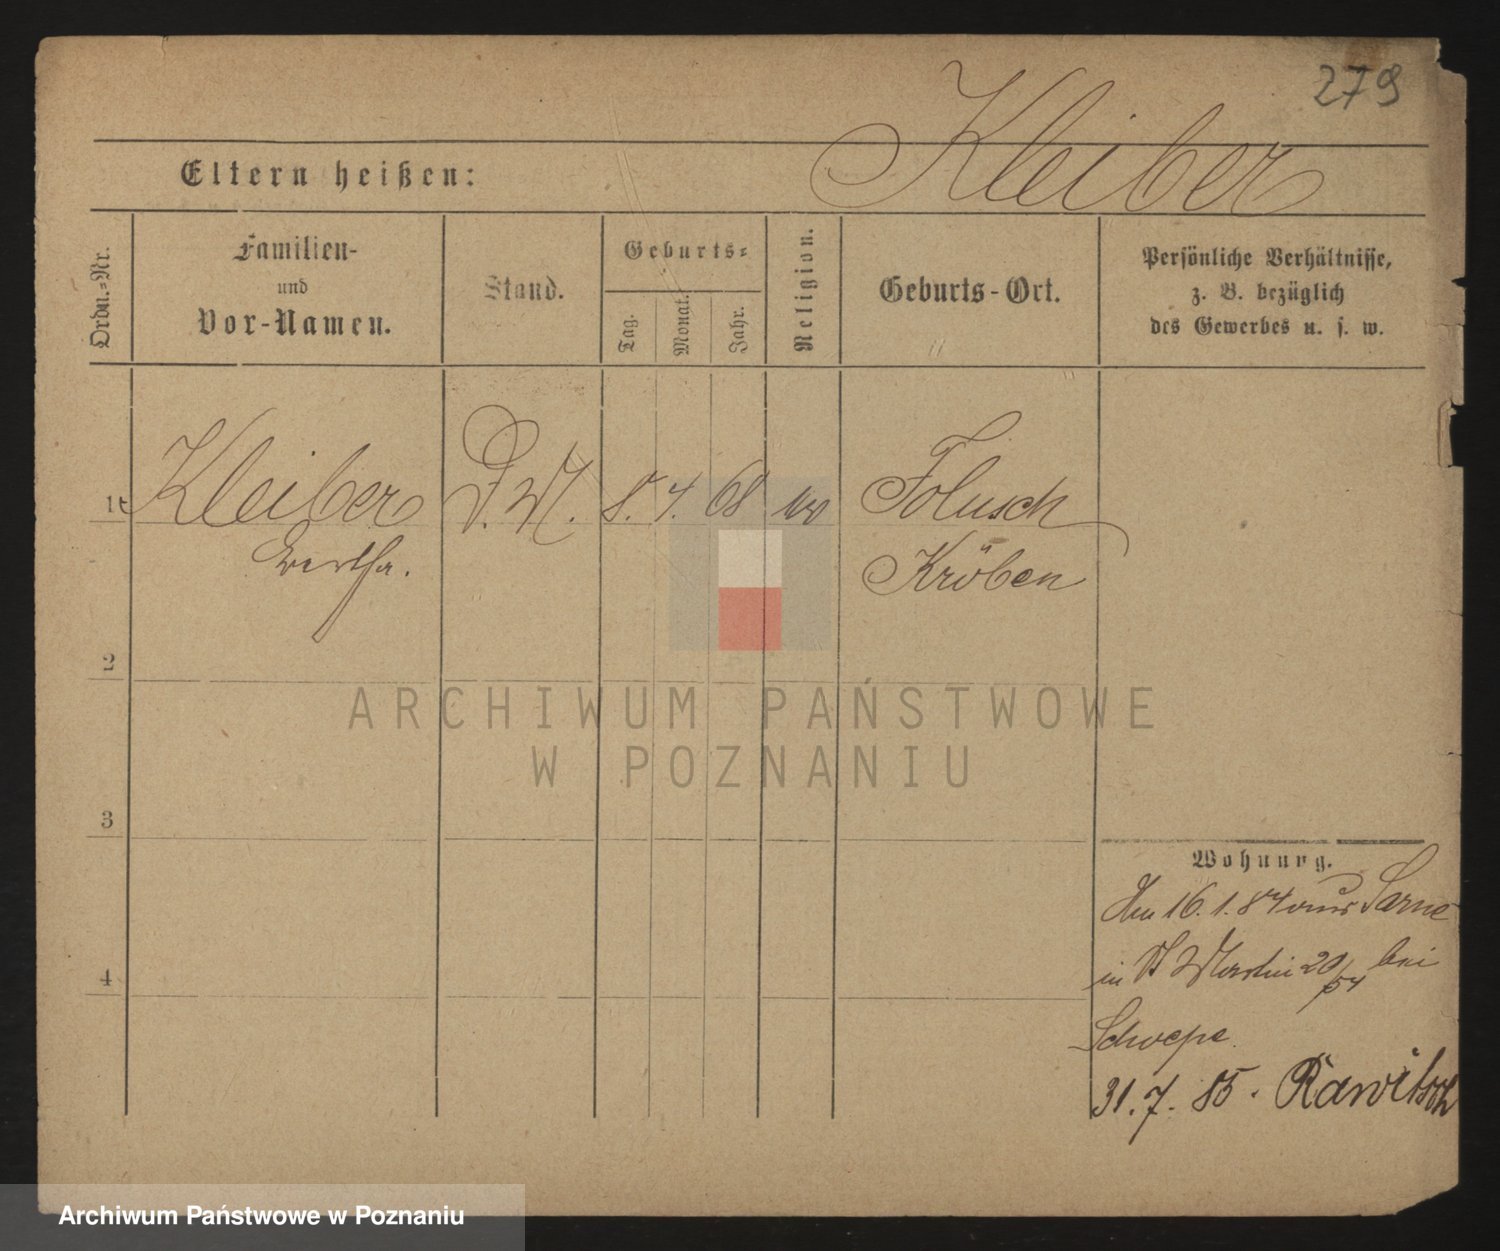 279
Kleiber
Eltern heißen:
Ordn.=Nr.
Familien-
und
Vor-Namen.
Stand.
Geburts=
Tag.
Monat.
Jahr.
Religion.
Geburts-Ort.
Persönliche Verhältnisse,
z. B. bezüglich
des Gewerbes u. s. w.
1 Kleiber D.M. 8. 4. 68 Folusch
Bertha. Kröben
2
3
4
Wohnung.
Am 16. 1. 84 aus Sarne
in St Martin 20/54 bei
Schoepe.
31. 7. 85. Rawitsch
ARCHIWUM PAŃSTWOWE
W POZNANIU
Archiwum Państwowe w Poznaniu